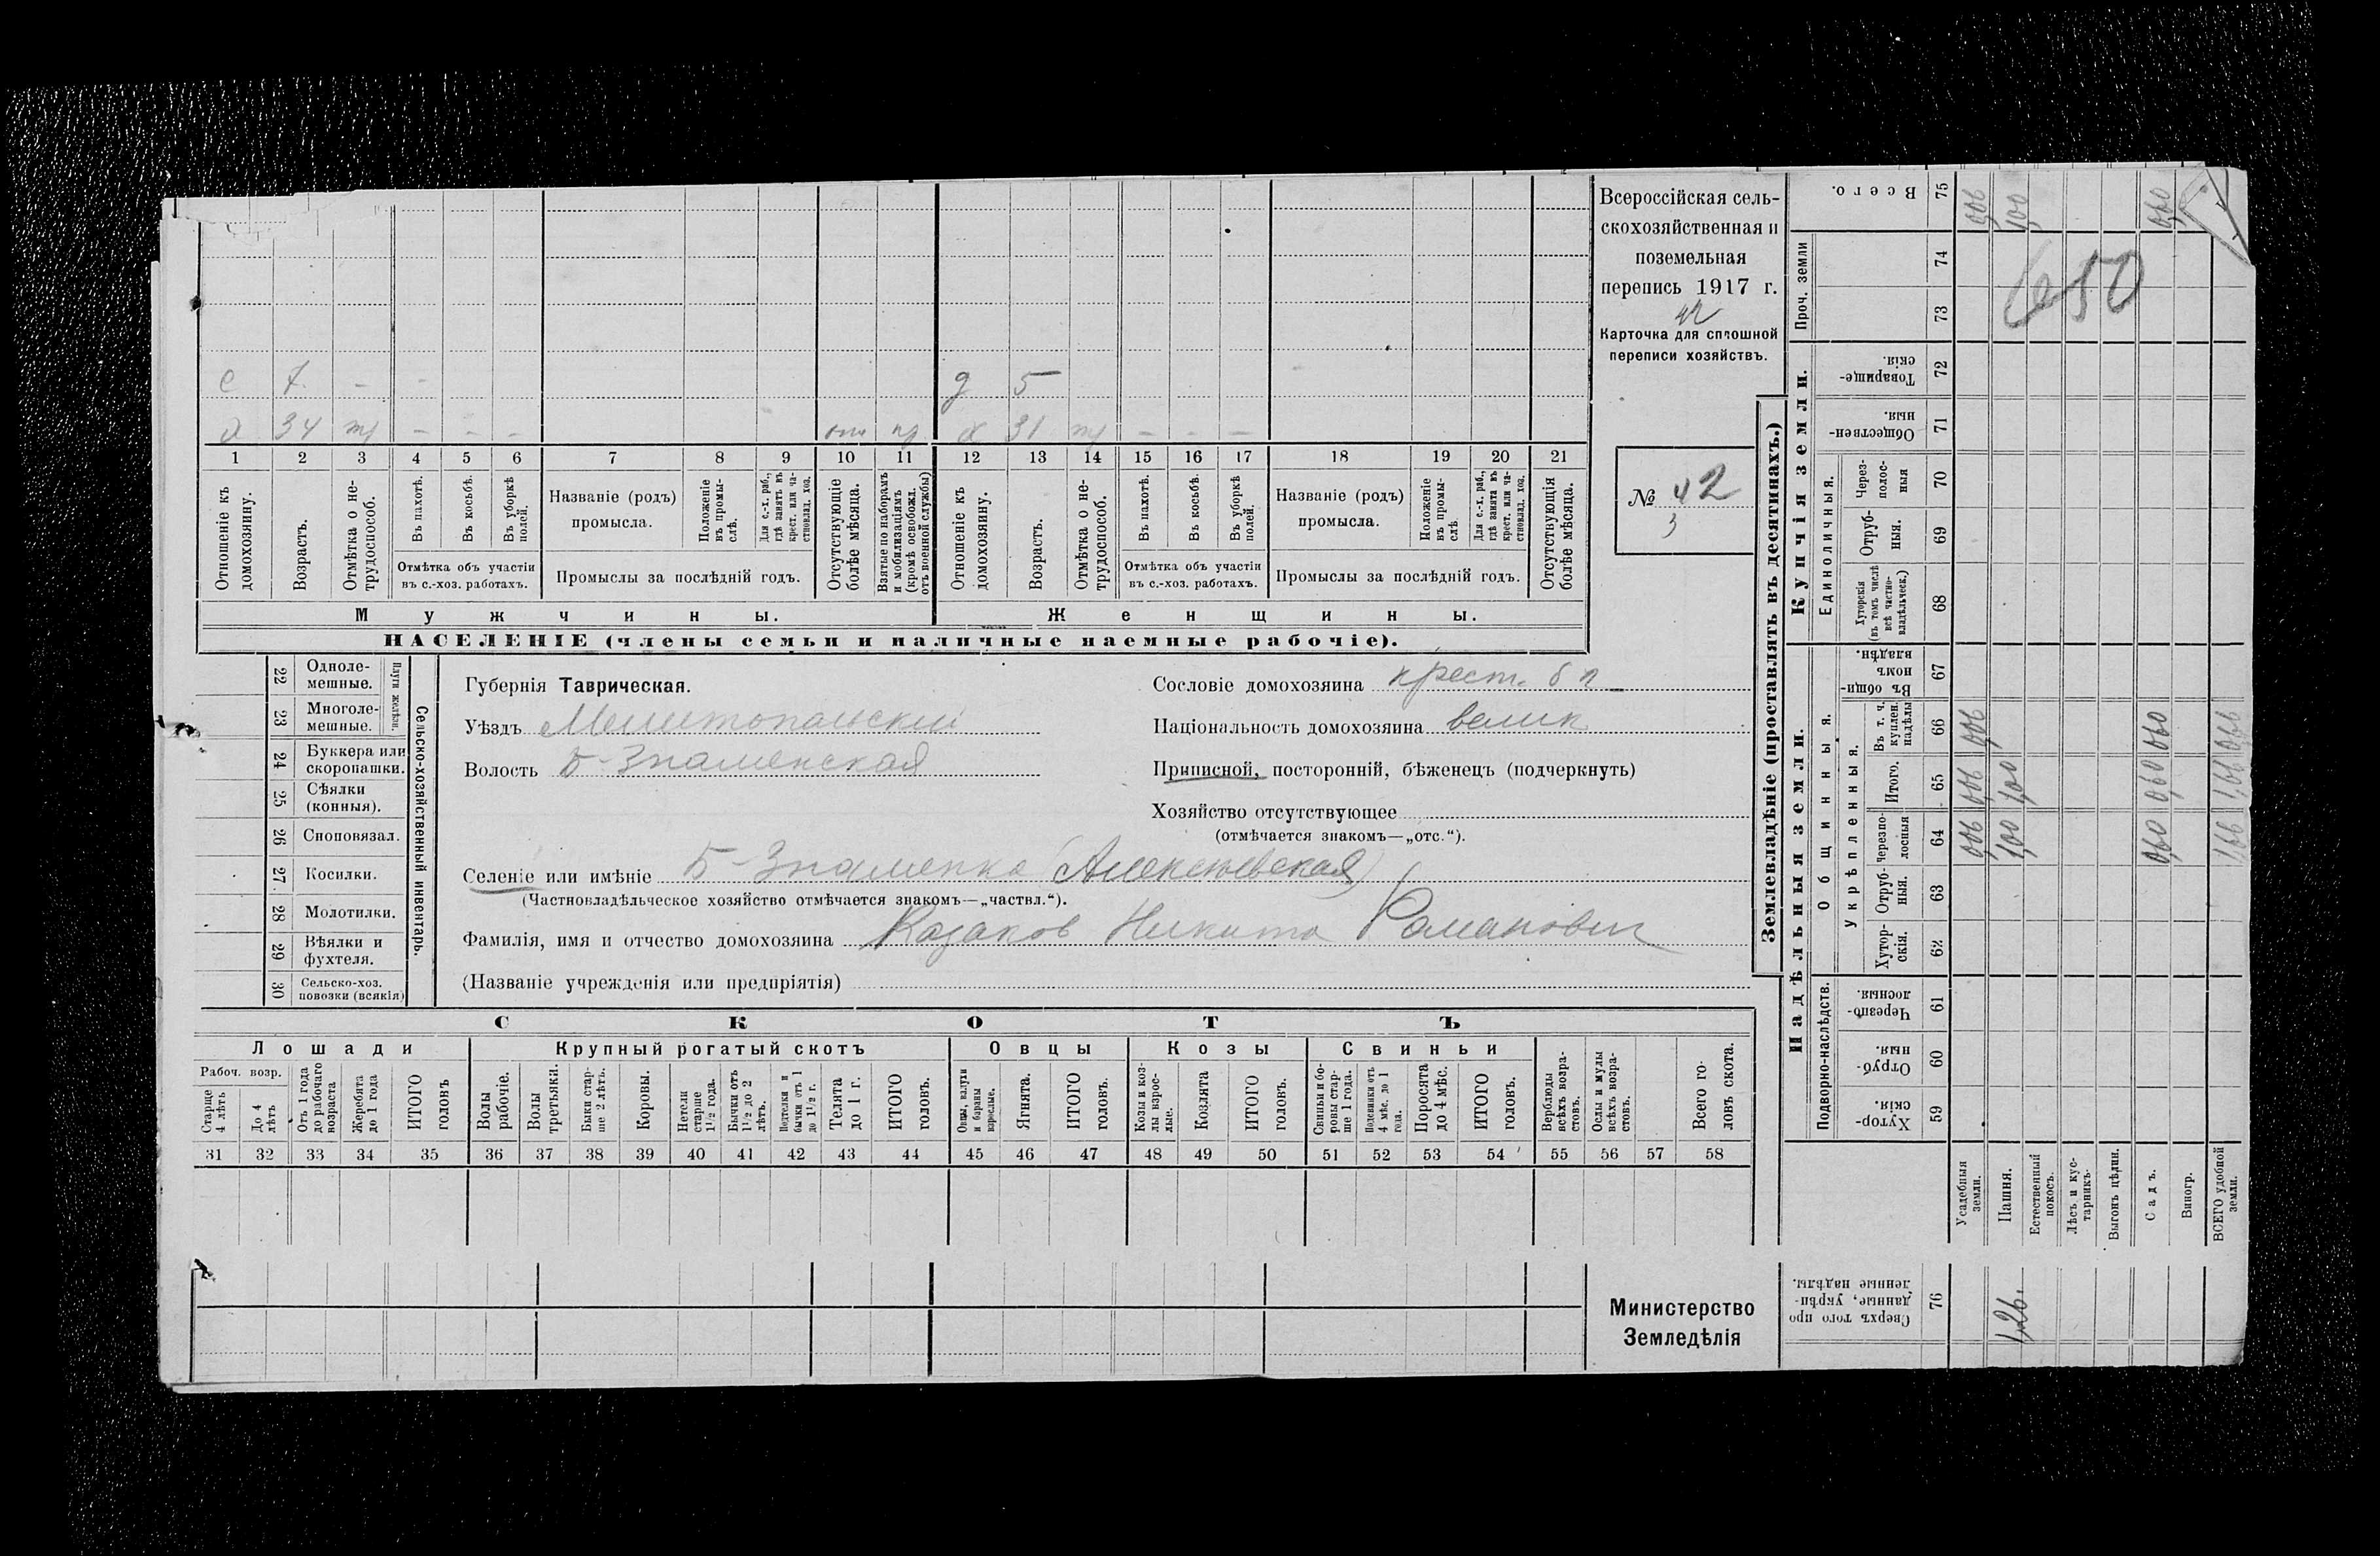 Всероссійская сель-
скохозяйственная и
поземельная
перепись 1917 г.
42
Карточка для сплошной
переписи хозяйствъ.
№ 42
3
с 7. - - д 5
х 34 - - - х 31 - - -
1 2 3 4 5 6 7 8 9 10 11 12 13 14 15 16 17 18 19 20 21
Отношеніе къ домохозяину.
Возрастъ.
Отмѣтка о не-трудоспособ.
Въ пахотѣ.
Въ косьбѣ.
Въ уборкѣ полей.
Отмѣтка объ участіи
въ с.-хоз. работахъ.
Названіе (родъ)
промысла.
Положеніе въ промы-слѣ.
Для с.-х. раб., гдѣ занятъ въ крест. или ча-стновлад. хоз.
Промыслы за послѣдній годъ.
Отсутствующіе болѣе мѣсяца.
Взятые по наборамъ и мобилизаціямъ (кромѣ освобожд. отъ военной службы)
Отношеніе къ домохозяину.
Возрастъ.
Отмѣтка о не-трудоспособ.
Въ пахотѣ.
Въ косьбѣ.
Въ уборкѣ полей.
Отмѣтка объ участіи
въ с.-хоз. работахъ.
Названіе (родъ)
промысла.
Положеніе въ промы-слѣ.
Для с.-х. раб., гдѣ занята въ крест. или ча-стновлад. хоз.
Промыслы за послѣдній годъ.
Отсутствующія болѣе мѣсяца.
Мужчины. Женщины.
НАСЕЛЕНІЕ (члены семьи и наличные наемные рабочіе).
22 Одноле-мешные.
23 Многоле-мешные.
Плуги желѣзн.
24 Буккера или скоропашки.
25 Сѣялки (конныя).
26 Сноповязал.
27. Косилки.
28 Молотилки.
29 Вѣялки и фухтеля.
30 Сельско-хоз. повозки (всякія)
Сельско-хозяйственный инвентарь.
Губернія Таврическая.
Уѣздъ Мелитопольский
Волость Б-Знаменская
Сословіе домохозяина крест. б п
Національность домохозяина велик
Приписной, посторонній, бѣженецъ (подчеркнуть)
Хозяйство отсутствующее
(отмѣчается знакомъ—„отс.“).
Селеніе или имѣніе Б-Знаменка (Алексеевская)
(Частновладѣльческое хозяйство отмѣчается знакомъ—„частвл.“).
Фамилія, имя и отчество домохозяина Казаков Никита Романович
(Названіе учрежденія или предпріятія)
СКОТЪ
Лошади Крупный рогатый скотъ Овцы Козы Свиньи
Рабоч. возр.
Старше 4 лѣтъ
До 4 лѣтъ
Отъ 1 года до рабочаго возраста
Жеребята до 1 года
ИТОГО головъ
Волы рабочіе.
Волы третьяки.
Быки стар-ше 2 лѣтъ.
Коровы.
Нетели старше 1½ года.
Бычки отъ 1½ до 2 лѣтъ.
Подтелки и бычки отъ 1 до 1½ г.
Телята до 1 г.
ИТОГО головъ.
Овцы, валухи и бараны взрослые.
Ягнята.
ИТОГО головъ.
Козы и коз-лы взрос-лые.
Козлята
ИТОГО головъ.
Свиньи и бо-ровы стар-ше 1 года.
Подсвинки отъ 4 мѣс. до 1 года.
Поросята до 4 мѣс.
ИТОГО головъ.
Верблюды всѣхъ возра-стовъ.
Ослы и мулы всѣхъ возра-стовъ.
Всего го-ловъ скота.
31 32 33 34 35 36 37 38 39 40 41 42 43 44 45 46 47 48 49 50 51 52 53 54 55 56 57 58
Министерство
Земледѣлія
Землевладѣніе (проставлять въ десятинахъ.)
Надѣльныя земли. Купчія земли. Проч. земли
Подворно-наслѣдств.
Общинныя.
Укрѣпленныя.
Единоличныя.
Хутор-скія. 59
Отруб-ныя. 60
Черезпо-лосныя. 61
Хутор-скія. 62
Отруб-ныя. 63
Черезпо-лосныя 64
Итого. 65
Въ т. ч. куплен. надѣлы 66
Въ общи-номъ владѣн. 67
Хуторскія (въ томъ числѣ всѣ частно-владѣльческ.) 68
Отруб-ныя. 69
Через-полос-ныя 70
Обществен-ныя. 71
Товарище-скія. 72
73
74
Всего. 75
Сверхъ того про-данные, укрѣп-ленные надѣлы. 76
Усадебныя земли. 0,06 0,06 0,06 0,06
Пашня. 1,00 1,00 1,00 1,26.
Естественный покосъ.
Лѣсъ и кус-тарникъ.
Выгонъ цѣлин.
Садъ. 0,60 0,60 0,60 0,60
Виногр.
ВСЕГО удобной земли. 1,66 1,66 0,66